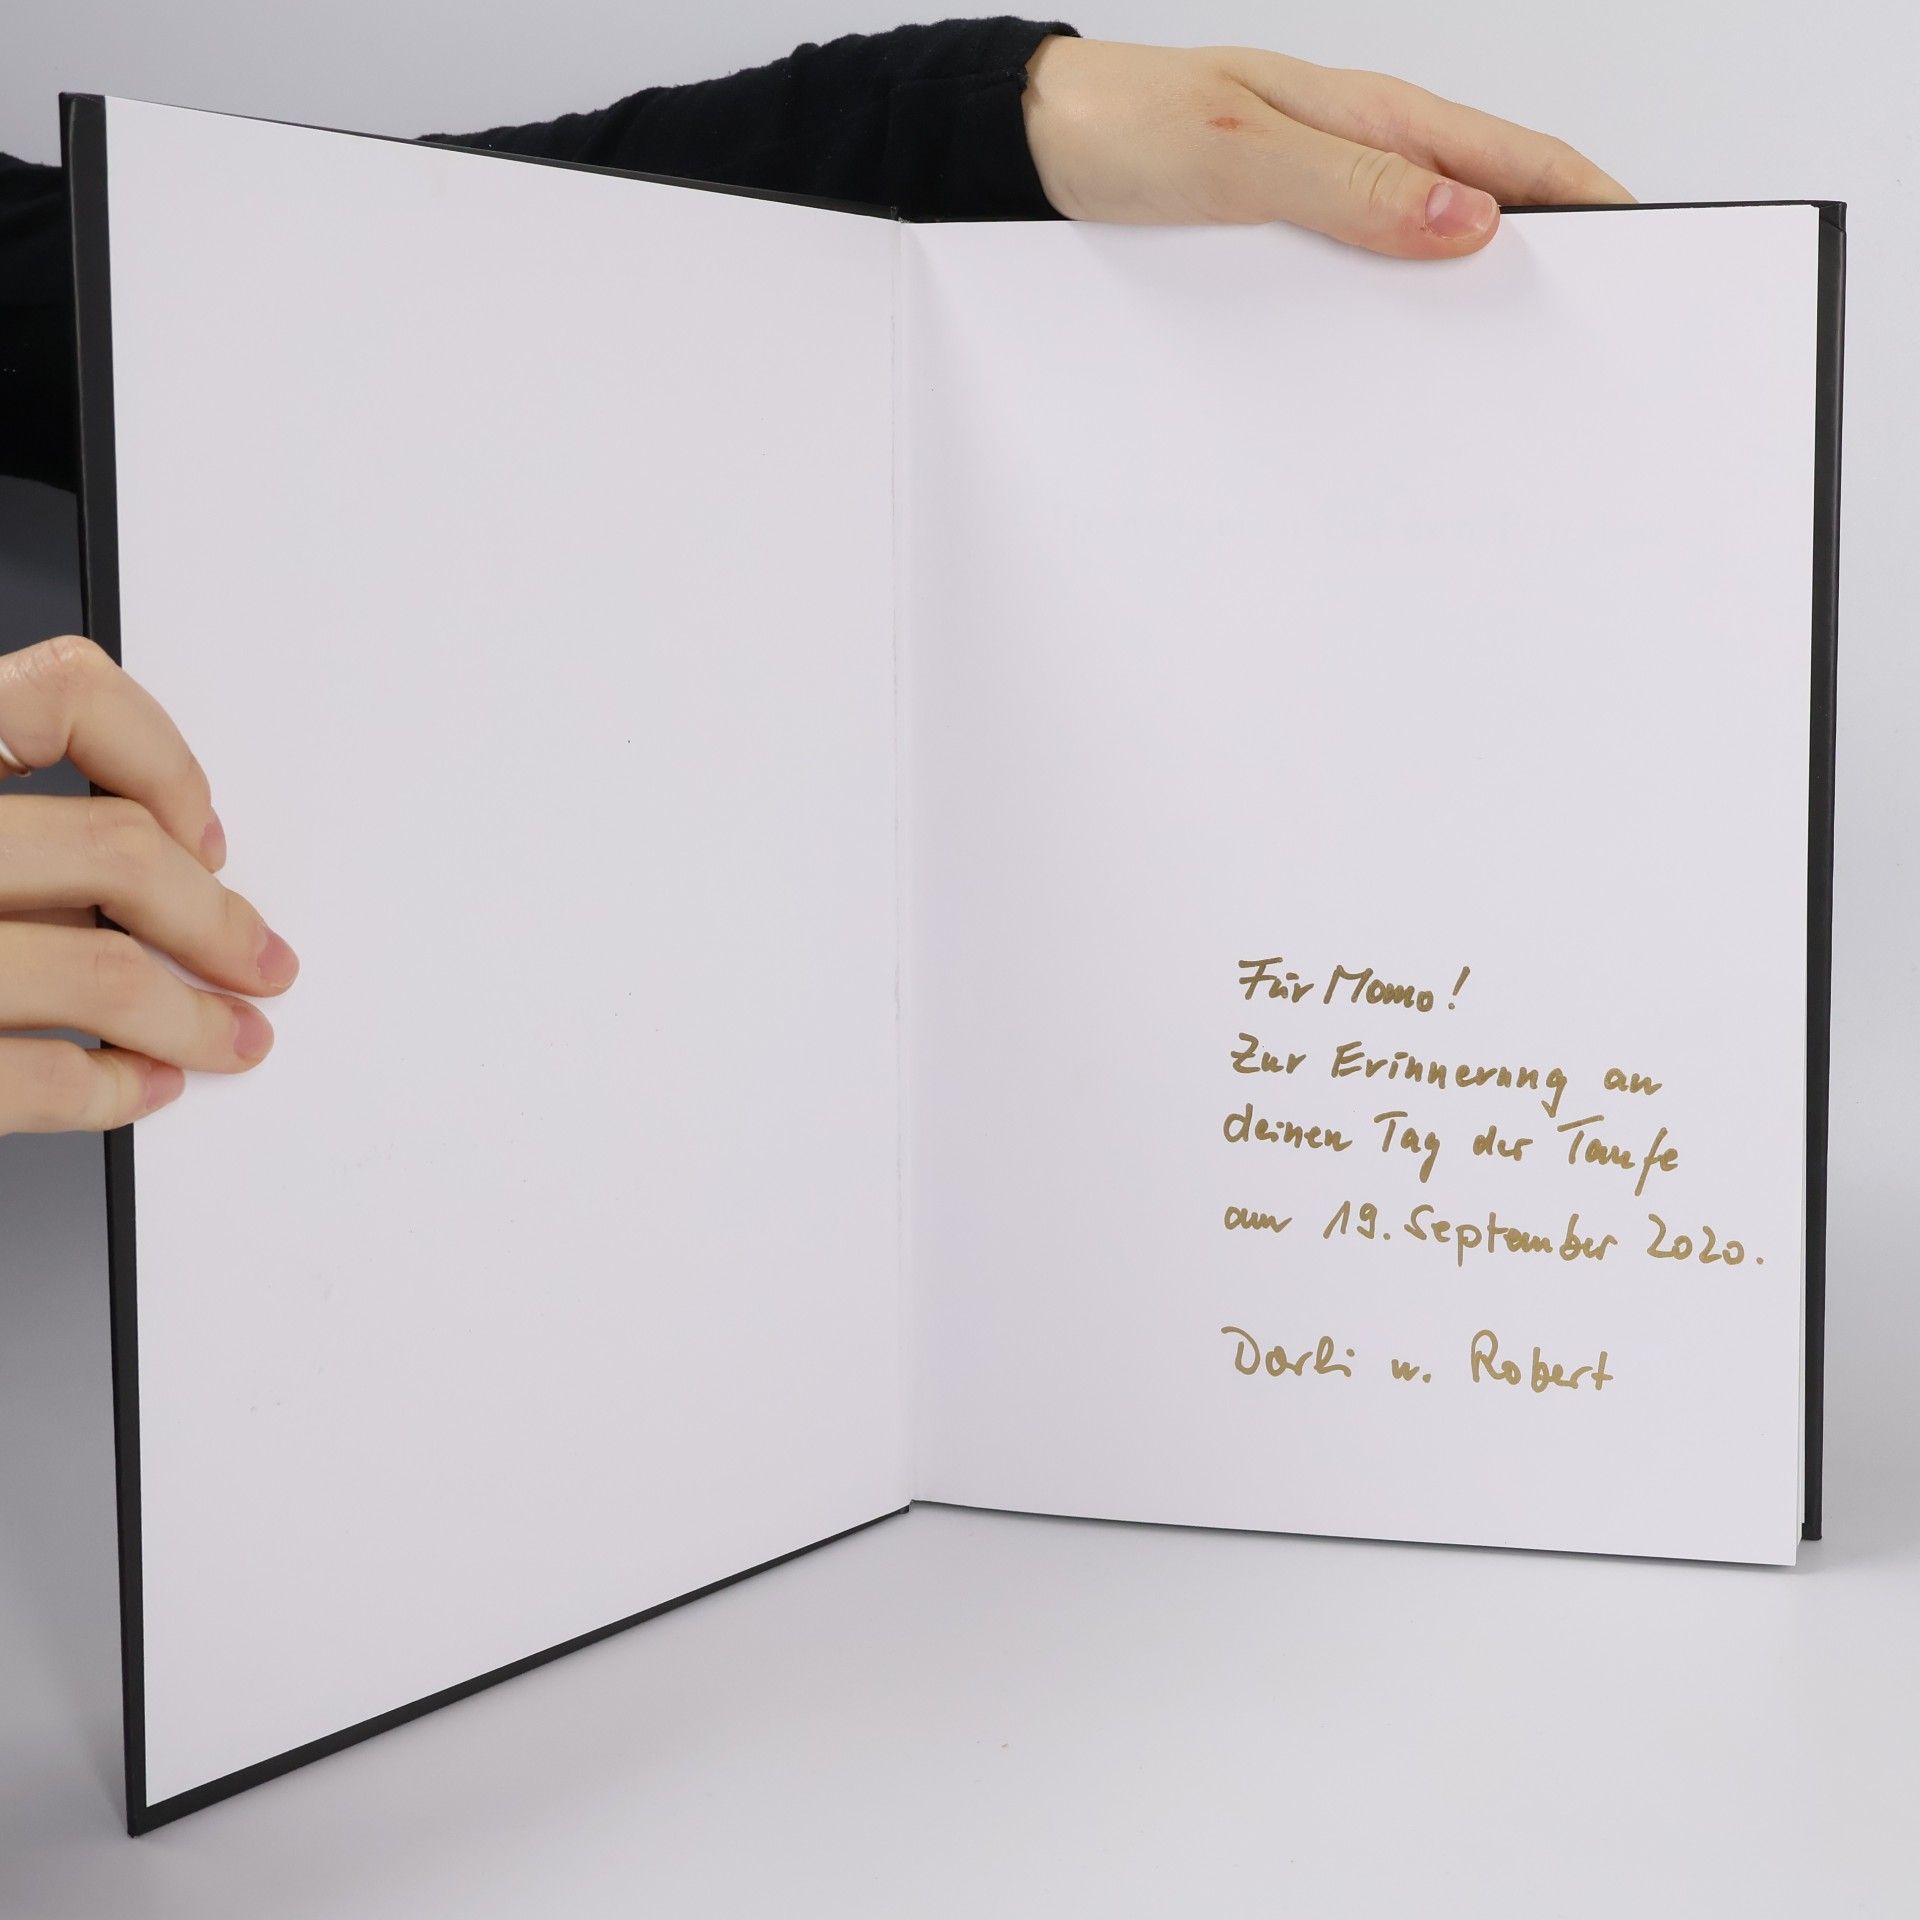 Für Momo!
Zur Erinnerung an
deinen Tag der Taufe
am 19. September 2020.
u. Robert